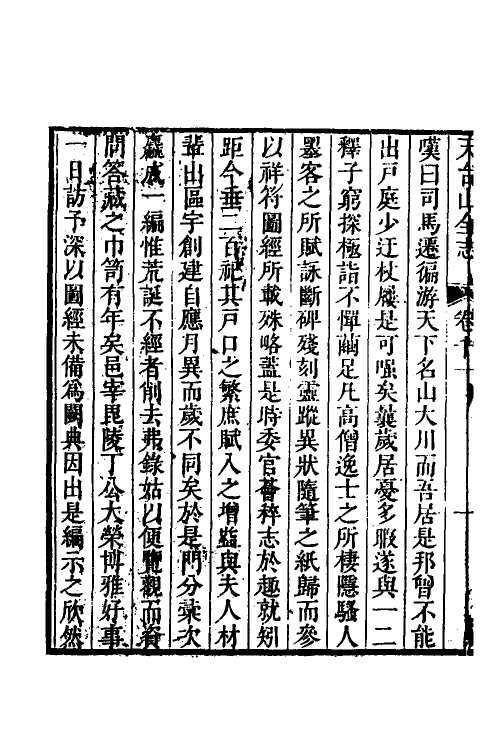 天台山全志 卷十
嘆曰司馬遷徧游天下名山大川而吾居是邦曾不能
出戸庭少迂杖屨是可强矣曩歲居憂多暇遂與一二
釋子窮探極詣不憚繭足凡高僧逸士之所棲隱騷人
墨客之所賦詠斷碑殘刻靈蹤異狀隨筆之紙歸而參
以祥符圖經所載殊略蓋是時委官薈稡志於趣就矧
距今垂二百祀其戸口之繁庶賦入之增益與夫人材
輩出區宇創建自應月異而歲不同矣於是門分彙次
麤成一編惟荒誕不經者削去弗錄姑以便覽觀而資
問答藏之巾笥有年矣邑宰毘陵丁公大榮博雅好事
一日訪予深以圖經未備爲闕典因出是編示之欣然